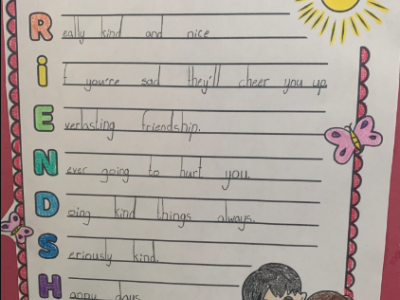 Really kind and nice
If you're sad they'll cheer you up
Everlasting friendship.
Never going to hurt you.
Doing kind things always.
Seriously kind.
Happy days